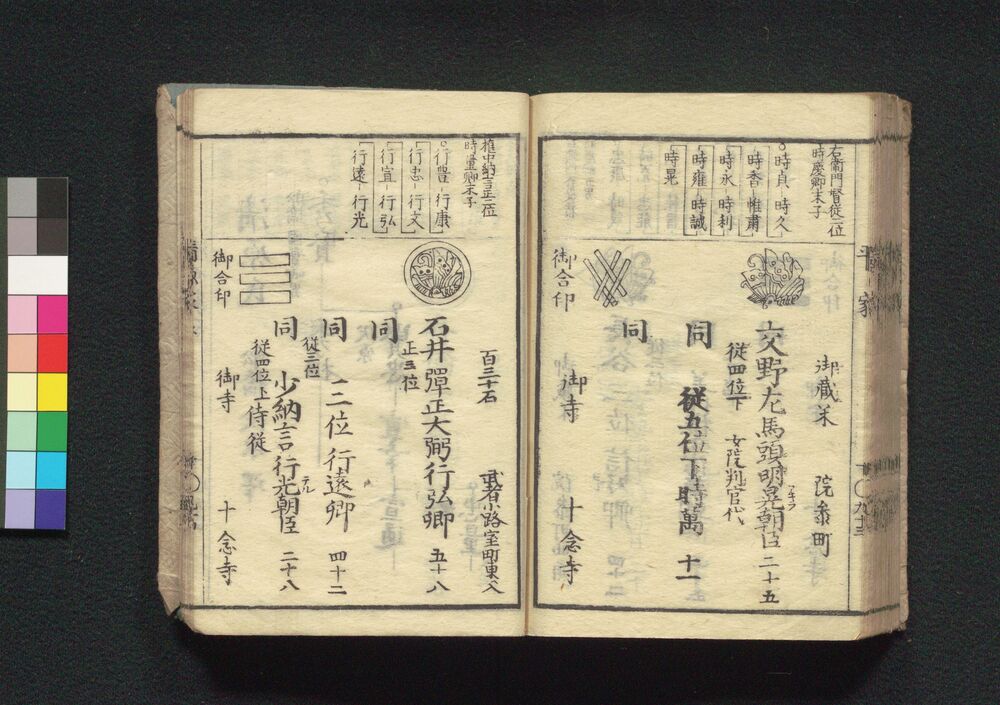 平家
右衛門督従二位
時慶卿末子
○時貞-時久
時香-惟肅
時永-時利
時雍-時誠
時晃
御蔵米 院参町
交野左馬頭明晃朝臣 二十五
アキラ
従四位下 女院判官代
同 従五位下時萬 十一
同
御合印
御寺 十念寺
権中納言正二位
時量卿末子
○行豊-行康
行忠-行文
行宜-行弘
行遠-行光
百三十石 武者小路室町東入
石井彈正大弼行弘卿 五十八
正三位
同
同 二位行遠卿 四十二
従三位
同 少納言行光朝臣 二十八
テル
従四位上侍従
御合印
御寺 十念寺